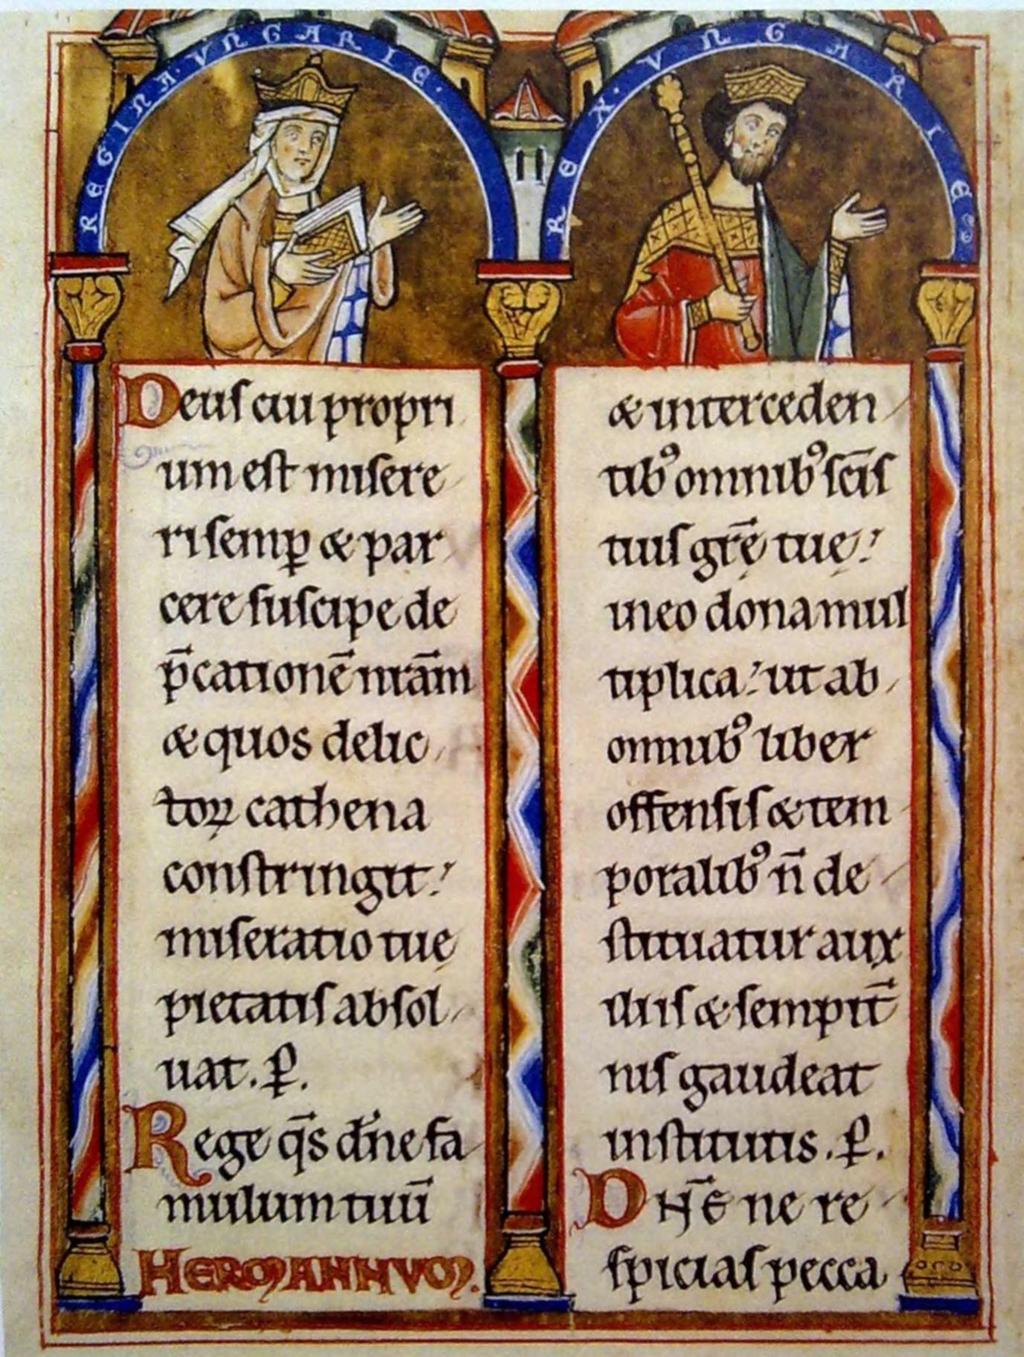 REGINA·VNGARIE·
REX·VNGARIE
Deuſ cui propri
um eſt miſere
ri ſemꝑ & par
cere ſuſcipe de
p̄cationē nr̄am
& quos delic
toꝝ cathena
conſtringit:
miſeratio tuę
pietatiſ abſol
uat. ꝑ.
Rege qs̄ dn̄e fa
mulum tuū
HERMANNVM.
& interceden
tibꝰ omnibꝰ ſcīſ
tuiſ gr̄ę tuę:
in eo dona mul
tiplica: ut ab
omnibꝰ liber
offenſiſ & tem
poralibꝰ n̄ de
ſtituatur aux
iliiſ & ſempit̄
niſ gaudeat
inſtitutis. ꝑ.
DN̄E ne re
ſpiciaſ pecca